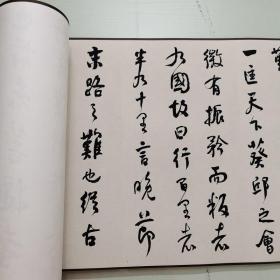 一匡天下葵邱之會
微有振矜而叛者
九國故曰行百里者
半九十里言晚節
末路之難也從古